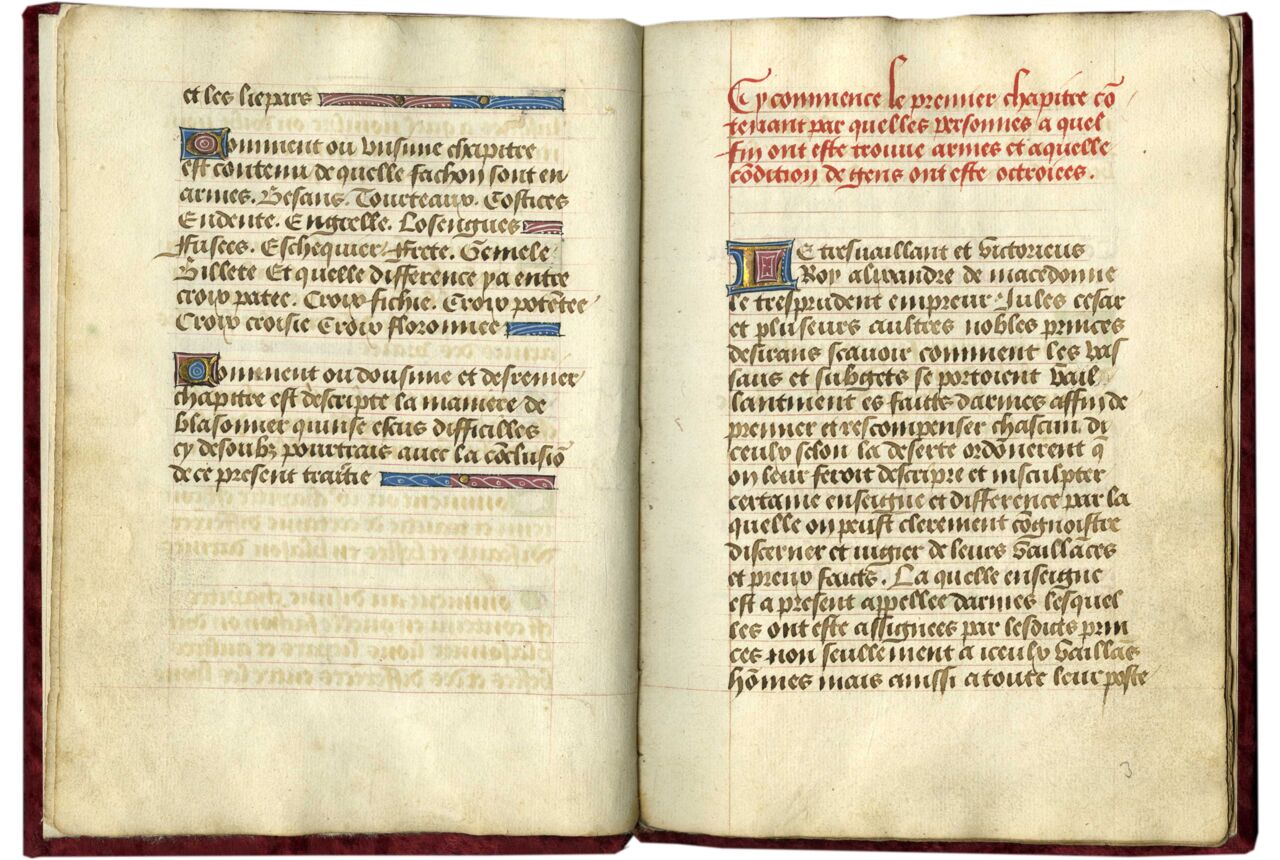 et les liepars
Comment ou unsime chapitre
est contenu de quelle fachon sont en
armes. Besans. Tourteaux. Costices
Endente. Engrelle. Losengues
Fusees. Eschequier. Frete. Gemele.
Billete Et quelle difference ya entre
croix patee. Croix fichie. Croix potētee
Croix croisie Croix floronnee
Comment ou dousime et desrenier
chapitre est descripte la maniere de
blasonner quinse escus difficilles
cy desoubz pourtrais avec la cōclusiō
de ce present traitie
Cy commence le premier chapitre cō
tenant par quelles personnes a quel
fin ont este trouve armes et a quelle
cōdition de gens ont este octroiees.
Le tresvaillant et victorieus
Roy alixandre de macedonne
le tresprudent empreur Jules cesar
et pluseurs aultres nobles princes
desirans scavoir comment les vas
saus et subgets se portoient vail
lantment es faitts darmes affin de
premier et rescompenser chascun di
ceulx selon sa deserte ordōnerent q̄
on leur feroit descripre et insculpter
certaine enseigne et difference par la
quelle on peust clerement cōgnoistre
discerner et iugier de leurs vaillāces
et preux faitts. La quelle enseigne
est a present appellee darmes lesquel
les ont este assignees par lesdits prin
ces non seullement a iceulx vaillās
hōmes mais aussi a toute leur poste
3